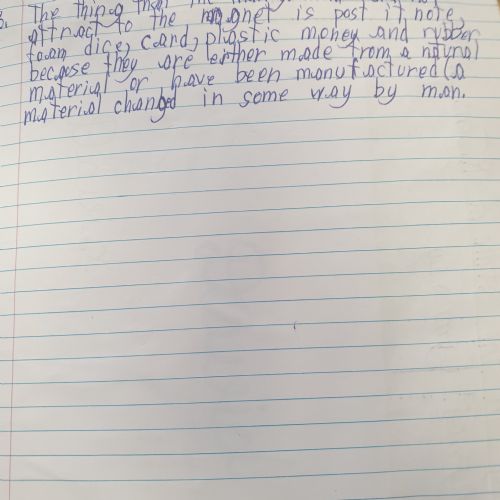 3. The thing that
attract to the magnet is post it note,
foam dice, card, plastic money and rubber
because they are either made from a natural
material or have been manufactured (a
material changed in some way by man.